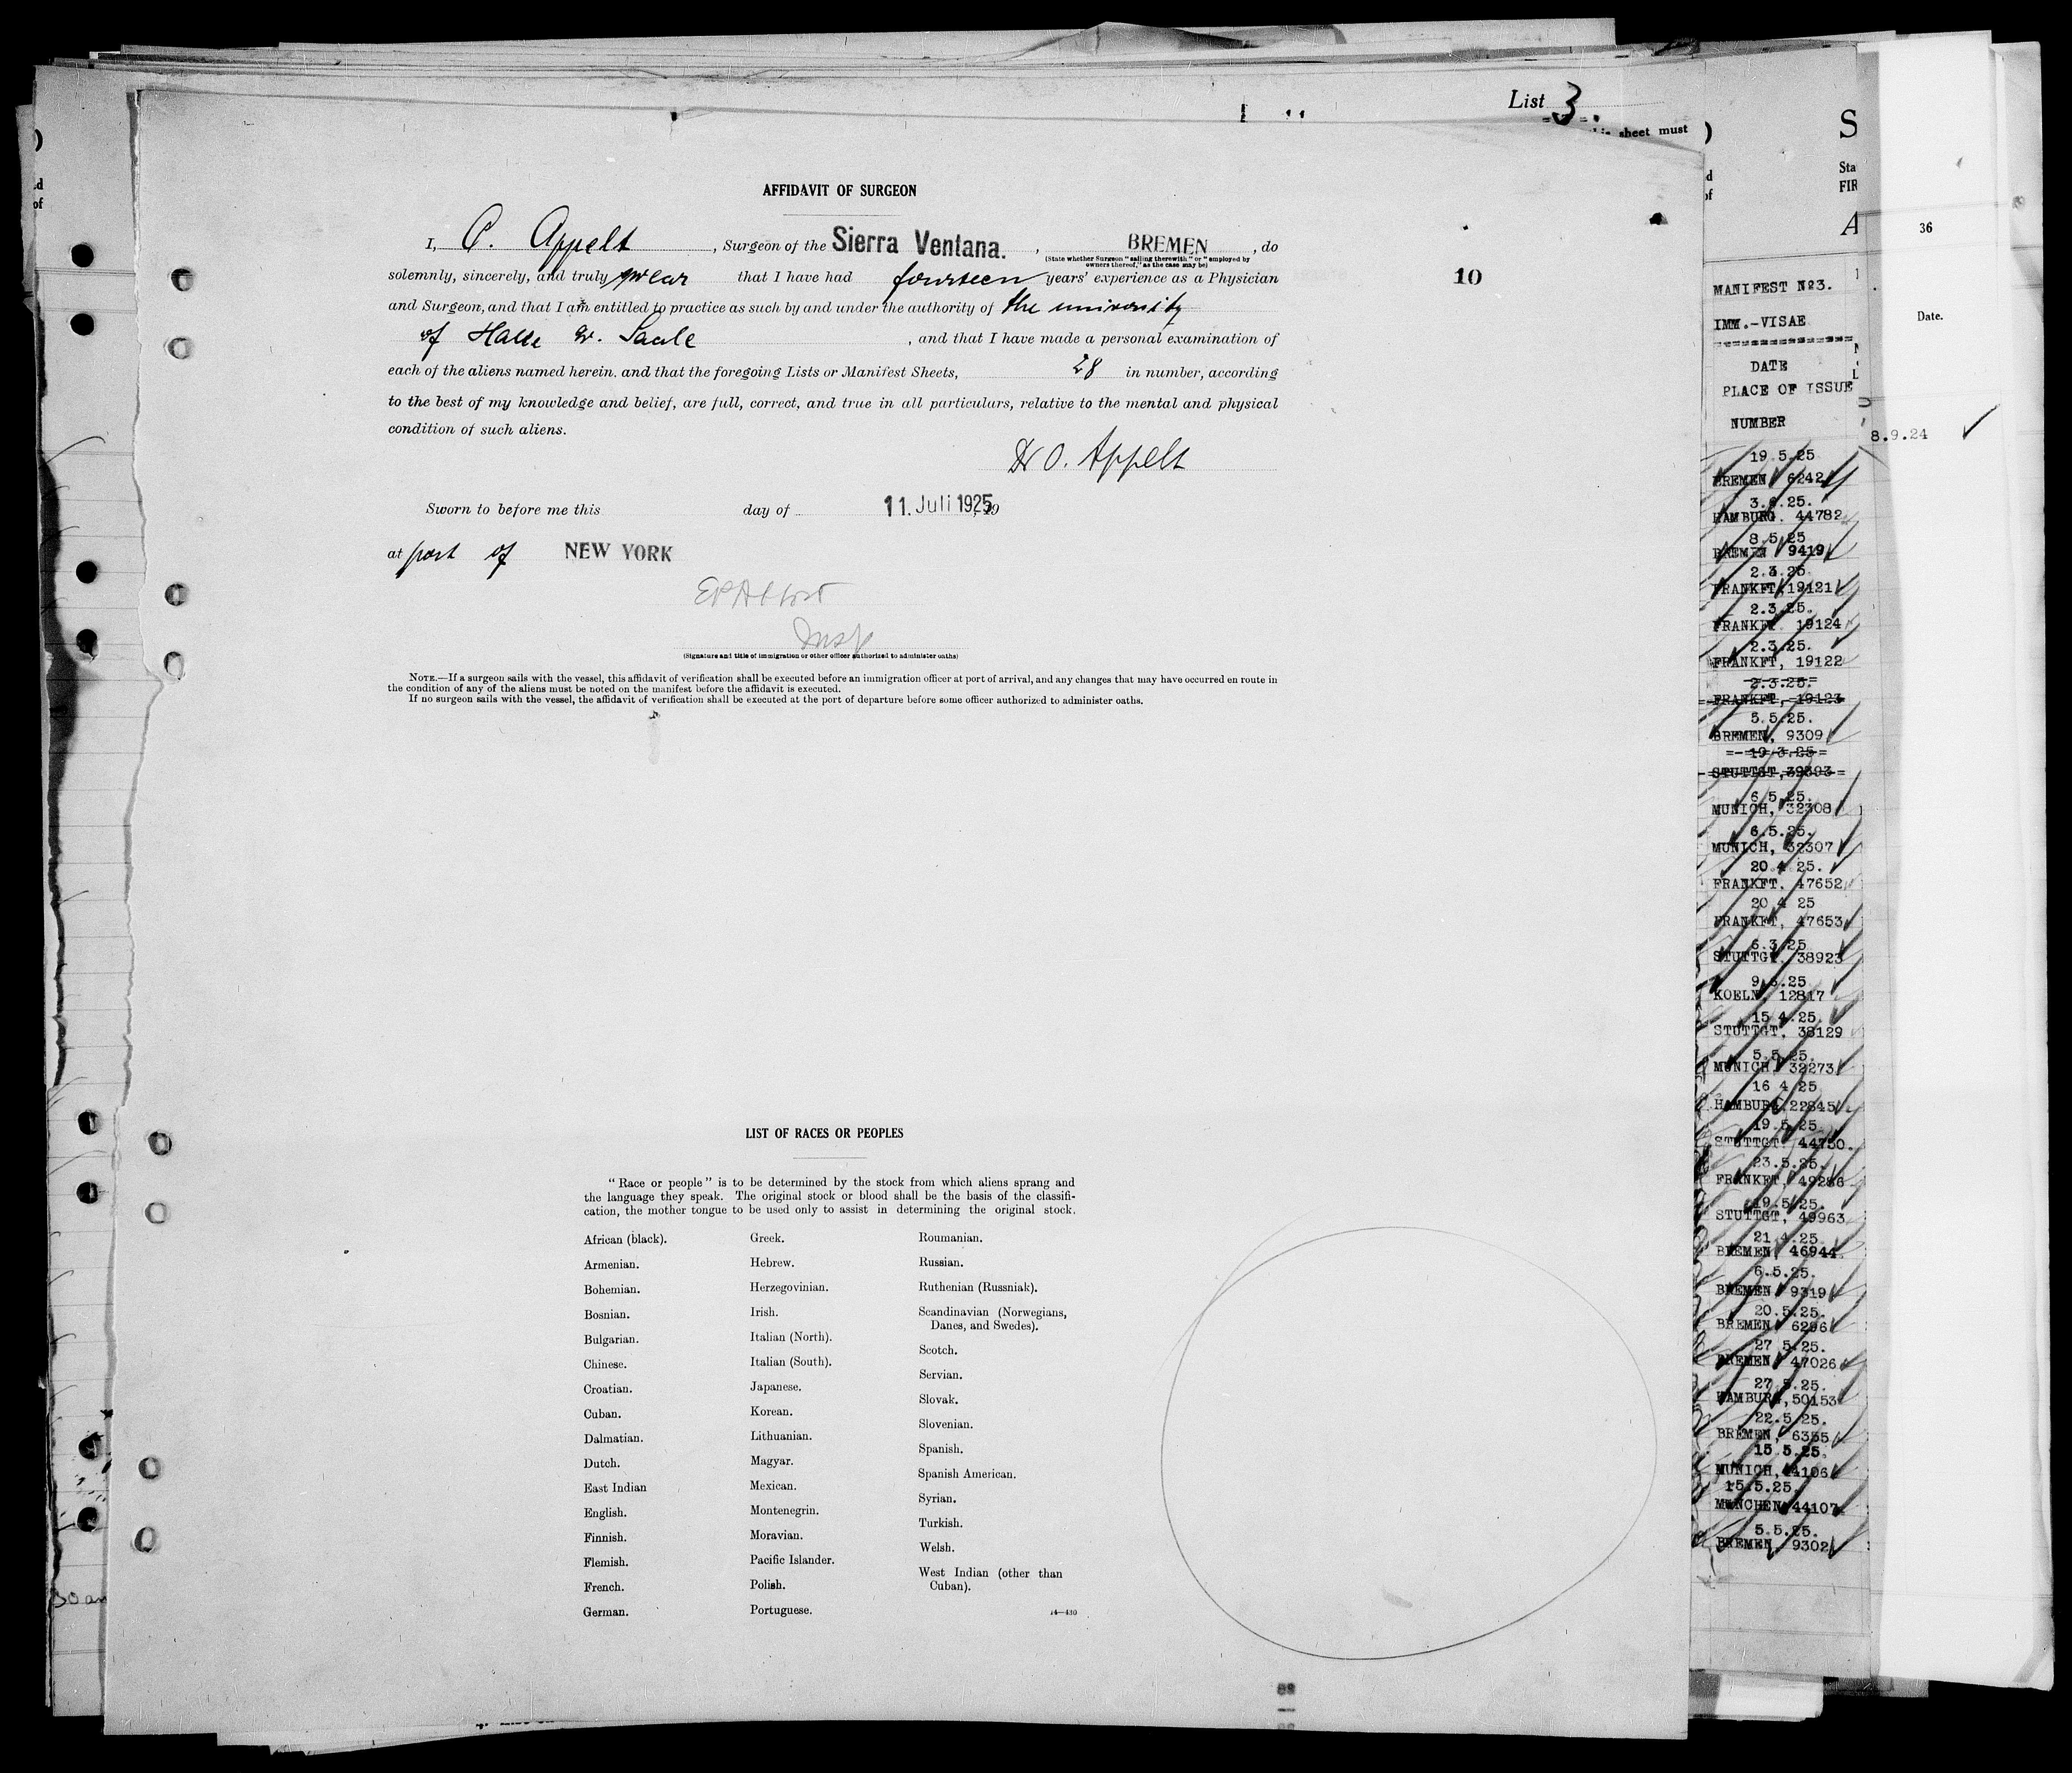 List 3
sheet must
AFFIDAVIT OF SURGEON
I, O. Appelt, Surgeon of the Sierra Ventana., BREMEN, do
(State whether Surgeon "sailing therewith" or "employed by
owners thereof," as the case may be)
solemnly, sincerely, and truly swear that I have had fourteen years' experience as a Physician
10
and Surgeon, and that I am entitled to practice as such by and under the authority of the university
of Halle a. Saale, and that I have made a personal examination of
each of the aliens named herein, and that the foregoing Lists or Manifest Sheets, 28 in number, according
to the best of my knowledge and belief, are full, correct, and true in all particulars, relative to the mental and physical
condition of such aliens.
Dr O. Appelt
Sworn to before me this day of 11. Juli 1925, 19
at port of NEW YORK
Insp
(Signature and title of immigration or other officer authorized to administer oaths)
NOTE.—If a surgeon sails with the vessel, this affidavit of verification shall be executed before an immigration officer at port of arrival, and any changes that may have occurred en route in
the condition of any of the aliens must be noted on the manifest before the affidavit is executed.
If no surgeon sails with the vessel, the affidavit of verification shall be executed at the port of departure before some officer authorized to administer oaths.
LIST OF RACES OR PEOPLES
"Race or people" is to be determined by the stock from which aliens sprang and
the language they speak. The original stock or blood shall be the basis of the classifi-
cation, the mother tongue to be used only to assist in determining the original stock.
African (black).
Armenian.
Bohemian.
Bosnian.
Bulgarian.
Chinese.
Croatian.
Cuban.
Dalmatian.
Dutch.
East Indian
English.
Finnish.
Flemish.
French.
German.
Greek.
Hebrew.
Herzegovinian.
Irish.
Italian (North).
Italian (South).
Japanese.
Korean.
Lithuanian.
Magyar.
Mexican.
Montenegrin.
Moravian.
Pacific Islander.
Polish.
Portuguese.
Roumanian.
Russian.
Ruthenian (Russniak).
Scandinavian (Norwegians,
Danes, and Swedes).
Scotch.
Servian.
Slovak.
Slovenian.
Spanish.
Spanish American.
Syrian.
Turkish.
Welsh.
West Indian (other than
Cuban).
14—430
S
Sta
FIR
A
MANIFEST No3.
IMM.-VISAE
DATE
PLACE OF ISSUE
NUMBER
19.5.25
BREMEN 6242
3.6.25.
HAMBURG. 44782
8.5.25
BREMEN 9419
2.3.25.
FRANKFT, 19121
2.3.25.
FRANKFT. 19124
2.3.25.
FRANKFT, 19122
2.3.25.
FRANKFT, 19123
5.5.25.
BREMEN, 9309
19.3.25
STUTTGT, 39393
6.5.25.
MUNICH, 32308
6.5.25.
MUNICH, 32307
20.4.25.
FRANKFT. 47652
20 4 25
FRANKFT, 47653
6.3.25
STUTTGT. 38923
KOELN, 12817
15.4.25.
STUTTGT. 38129
5.5.25.
MUNICH 32273
16 4 25
HAMBURG 22845
19.5.25
STUTTGT. 44750.
23.5.25.
FRANKFT, 49286
19.5.25.
STUTTGT, 49963
21 4.25
BREMEN 46944
6.5.25.
BREMEN 9319
20.5.25.
BREMEN 6296
27 5.25.
BREMEN 47026
27.5.25.
HAMBURG, 50153
22.5.25.
BREMEN, 6355
15.5.25.
MUNICH, 44106
15.5.25.
MUNCHEN 44107
5.5.25.
BREMEN, 9302
36
Date.
8.9.24